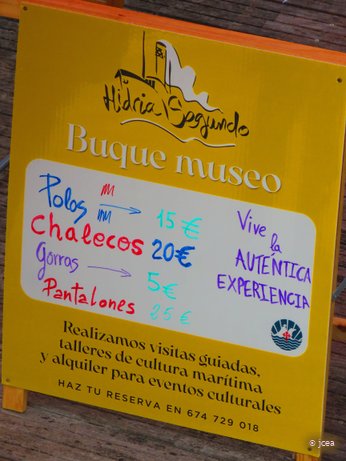 Hidria Segundo
Buque museo
Polos → 15 €
Chalecos 20 €
Gorros → 5 €
Pantalones 25 €
Vive la
AUTÉNTICA
EXPERIENCIA
Realizamos visitas guiadas,
talleres de cultura marítima
y alquiler para eventos culturales
HAZ TU RESERVA EN 674 729 018
© jcea